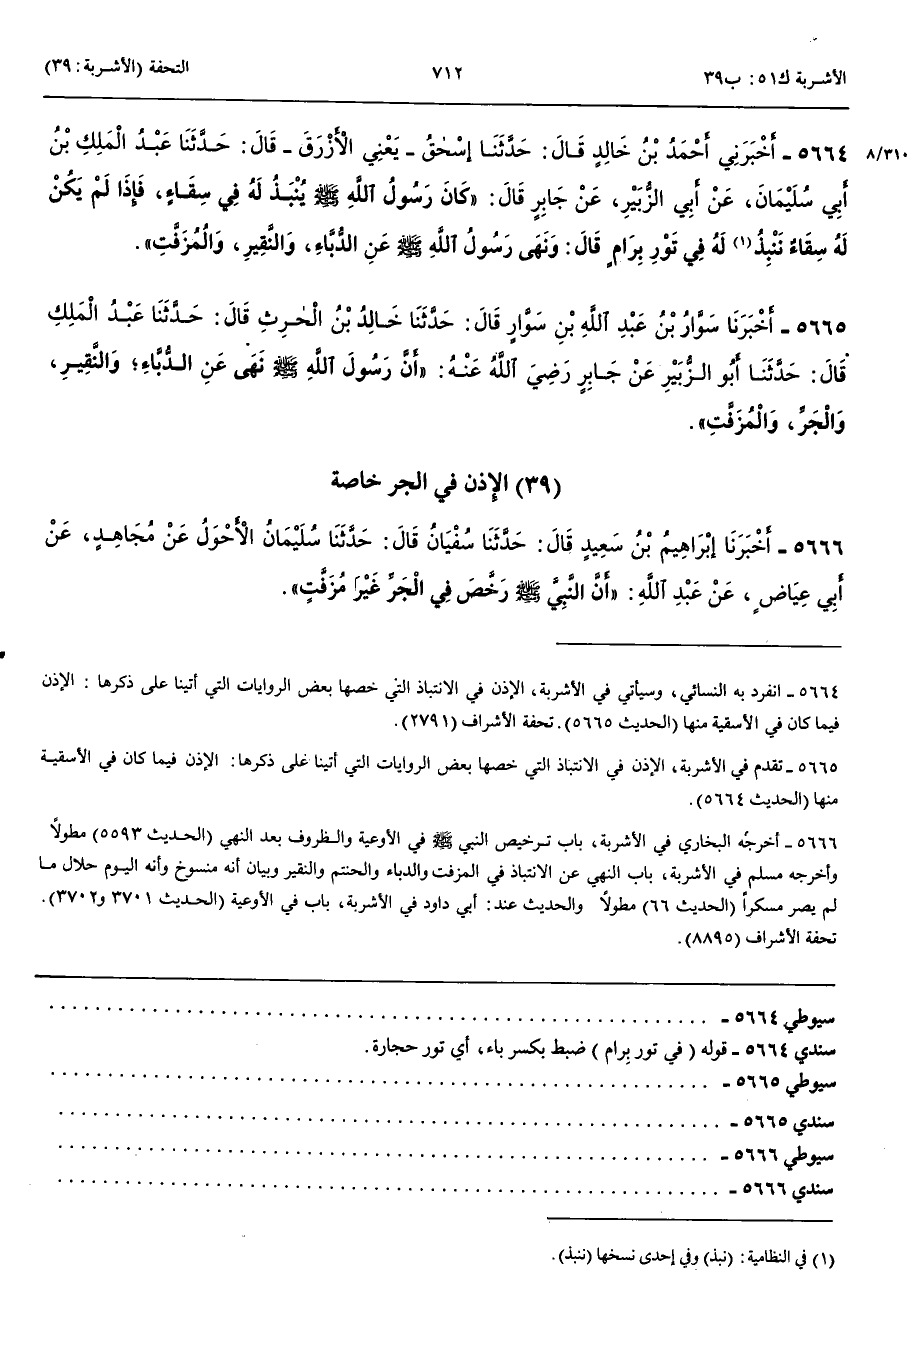 الأشربة ك٥١: ب٣٩ ٧١٢ التحفة (الأشربة: ٣٩)
٨/٣١٠ ٥٦٦٤ - أَخْبَرَنِي أَحْمَدُ بْنُ خَالِدٍ قَالَ: حَدَّثَنَا إِسْحٰقُ - يَعْنِي الْأَزْرَقَ - قَالَ: حَدَّثَنَا عَبْدُ الْمَلِكِ بْنُ
أَبِي سُلَيْمَانَ، عَنْ أَبِي الزُّبَيْرِ، عَنْ جَابِرٍ قَالَ: «كَانَ رَسُولُ اللَّهِ ﷺ يُنْبَذُ لَهُ فِي سِقَاءٍ، فَإِذَا لَمْ يَكُنْ
لَهُ سِقَاءٌ نَنْبِذُ(١) لَهُ فِي تَوْرِ بِرَامٍ قَالَ: وَنَهَى رَسُولُ اللَّهِ ﷺ عَنِ الدُّبَّاءِ، وَالنَّقِيرِ، وَالْمُزَفَّتِ».
٥٦٦٥ - أَخْبَرَنَا سَوَّارُ بْنُ عَبْدِ اللَّهِ بْنِ سَوَّارٍ قَالَ: حَدَّثَنَا خَالِدُ بْنُ الْحٰرِثِ قَالَ: حَدَّثَنَا عَبْدُ الْمَلِكِ
قَالَ: حَدَّثَنَا أَبُو الزُّبَيْرِ عَنْ جَابِرٍ رَضِيَ اللَّهُ عَنْهُ: «أَنَّ رَسُولَ اللَّهِ ﷺ نَهَى عَنِ الدُّبَّاءِ؛ وَالنَّقِيرِ،
وَالْجَرِّ، وَالْمُزَفَّتِ».
(٣٩) الإِذن في الجر خاصة
٥٦٦٦ - أَخْبَرَنَا إِبْرَاهِيمُ بْنُ سَعِيدٍ قَالَ: حَدَّثَنَا سُفْيَانُ قَالَ: حَدَّثَنَا سُلَيْمَانُ الْأَحْوَلُ عَنْ مُجَاهِدٍ، عَنْ
أَبِي عِيَاضٍ، عَنْ عَبْدِ اللَّهِ: «أَنَّ النَّبِيَّ ﷺ رَخَّصَ فِي الْجَرِّ غَيْرَ مُزَفَّتٍ».
٥٦٦٤ - انفرد به النسائي، وسيأتي في الأشربة، الإذن في الانتباذ التي خصها بعض الروايات التي أتينا على ذكرها: الإذن
فيما كان في الأسقية منها (الحديث ٥٦٦٥). تحفة الأشراف (٢٧٩١).
٥٦٦٥ - تقدم في الأشربة، الإذن في الانتباذ التي خصها بعض الروايات التي أتينا على ذكرها: الإذن فيما كان في الأسقية
منها (الحديث ٥٦٦٤).
٥٦٦٦ - أخرجه البخاري في الأشربة، باب ترخيص النبي ﷺ في الأوعية والظروف بعد النهي (الحديث ٥٥٩٣) مطولاً
وأخرجه مسلم في الأشربة، باب النهي عن الانتباذ في المزفت والدباء والحنتم والنقير وبيان أنه منسوخ وأنه اليوم حلال ما
لم يصر مسكراً (الحديث ٦٦) مطولاً والحديث عند: أبي داود في الأشربة، باب في الأوعية (الحديث ٣٧٠١ و٣٧٠٢).
تحفة الأشراف (٨٨٩٥).
سيوطي ٥٦٦٤ - ........................................................
سندي ٥٦٦٤ - قوله (في تور بِرام) ضبط بكسر باء، أي تور حجارة.
سيوطي ٥٦٦٥ - ........................................................
سندي ٥٦٦٥ - ........................................................
سيوطي ٥٦٦٦ - ........................................................
سندي ٥٦٦٦ - ........................................................
(١) في النظامية: (نبذ) وفي إحدى نسخها (ننبذ).